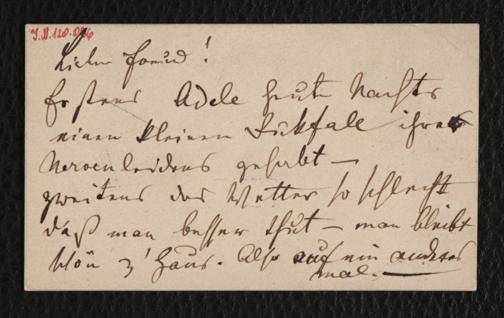 I.N.120.0
Lieber Freund!
Erstens Adele heute Nachts
einen kleinen Rückfall ihres
Nervenleidens gehabt –
zweitens das Wetter so schlecht
daß man besser thut – man bleibt
schön z' Haus. Also auf ein anderes
mal. –